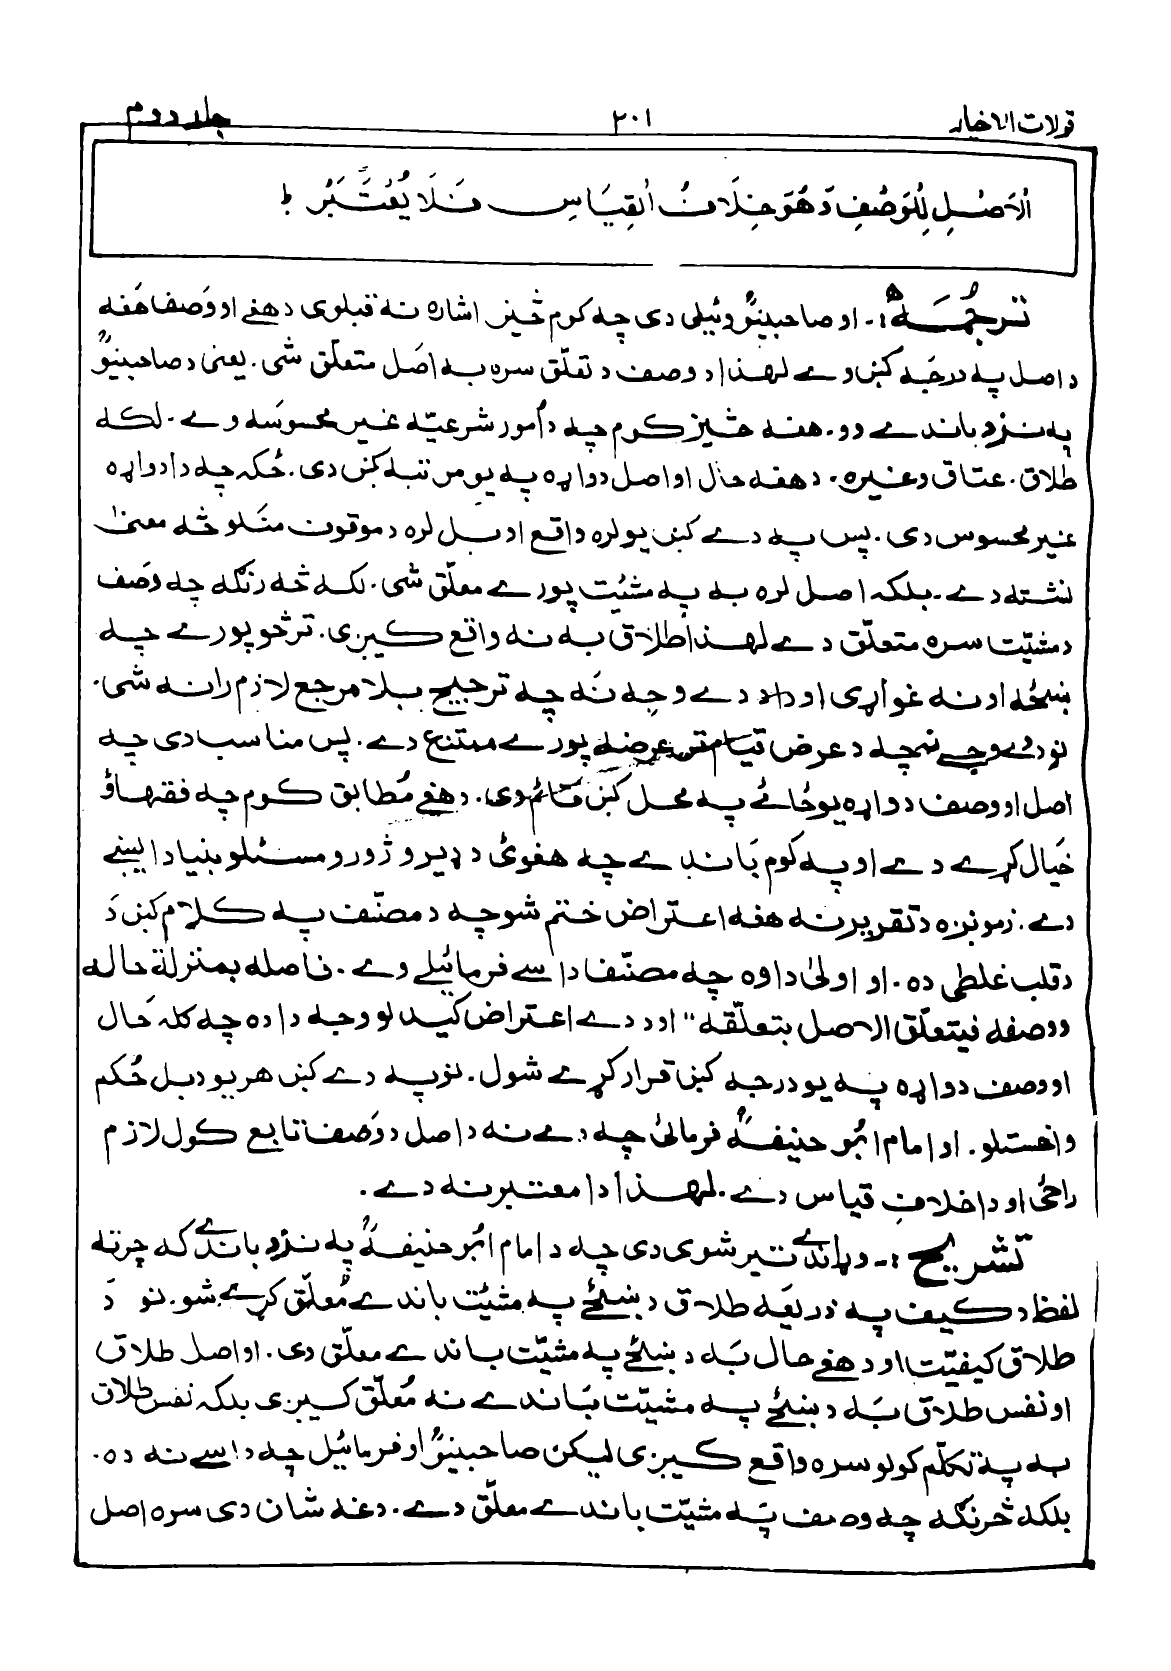 قولات الاخیار ۲۰۱ جلد دوم
اَلْاَصْلِ لِلْوَصْفِ وَهُوَ خِلَافُ الْقِيَاسِ فَلَا يُعْتَبَرُ ؛
ترجمه :- او صاحبینؒو وئیلی دی چه کوم څیز اشاره نه قبلوی د هغے او وَصف هغه
د اصل په درجه کښ وے لهٰذا د وصف د تعلّق سره به اصل متعلّق شی. یعنی د صاحبینؒو
په نزد باندے دو. هغه څیز کوم چه د اُمور شرعیّه غیر محسوسه وے. لکه
طلاق. عتاق وغیره. د هغه حال او اصل دواړه په یو مرتبه کښ دی. ځکه چه دا دواړه
غیر محسوس دی. پس په دے کښ یو لره واقع او بل لره د موقوف منلو څه معنیٰ
نشته دے. بلکه اصل لره به په مشیّت پورے معلّق شی. لکه څه رنگه چه وَصف
د مشیّت سره متعلّق دے لهٰذا طلاق به نه واقع کیږی. تر څو پورے چه
ښځه اونه غواړی او دا د دے وجه نه چه ترجیح بلا مرجع لازم رانه شی.
نو دے وجے نه چه د عرض قیام تر عرضه پورے ممتنع دے. پس مناسب دی چه
اصل او وصف دواړه یو ځائے په محل کښ قائم وی. د هغے مُطابق کوم چه فقهاؤ
خیال کړے دے او په کوم باندے چه هغوئ د ډیرو ژورو مسئلو بنیاد ایښے
دے. زمونږه د تقریر نه هغه اعتراض ختم شو چه د مصنّف په کلام کښ دَ
د قلب غلطی ده. او اولیٰ دا وه چه مصنّف داسے فرمائیلے وے. فاصله بمنزلة حاله
ووصفه فیتعلّق الاصل بتعلّقه" او د دے اعتراض کیدلو وجه دا ده چه کله حَال
او وصف دواړه په یو درجه کښ قرار کړے شول. نو په دے کښ هر یو د بل حُکم
واخستلو. او امام ابو حنیفهؒ فرمائی چه دے نه د اصل د وَصف تابع کول لازم
راځی او دا خلافِ قیاس دے. لهٰذا دا معتبر نه دے.
تشریح :- وړاندے تیر شوی دی چه د امام ابو حنیفهؒ په نزد باندے که چرته
لفظ د کیف په ذریعه طلاق د ښځے په مشیّت باندے مُعلّق کړے شو. نو دَ
طلاق کیفیّت او د هغے حال به د ښځے په مشیّت باندے معلّق دی. او اصل طلاق
او نفس طلاق به د ښځے په مشیّت باندے نه مُعلّق کیږی بلکه نفس طلاق
به په تکلّم کولو سره واقع کیږی لیکن صاحبینؒو اوفرمائیل چه داسے نه ده.
بلکه څرنگه چه وصف په مشیّت باندے معلّق دے. دغه شان دی سره اصل